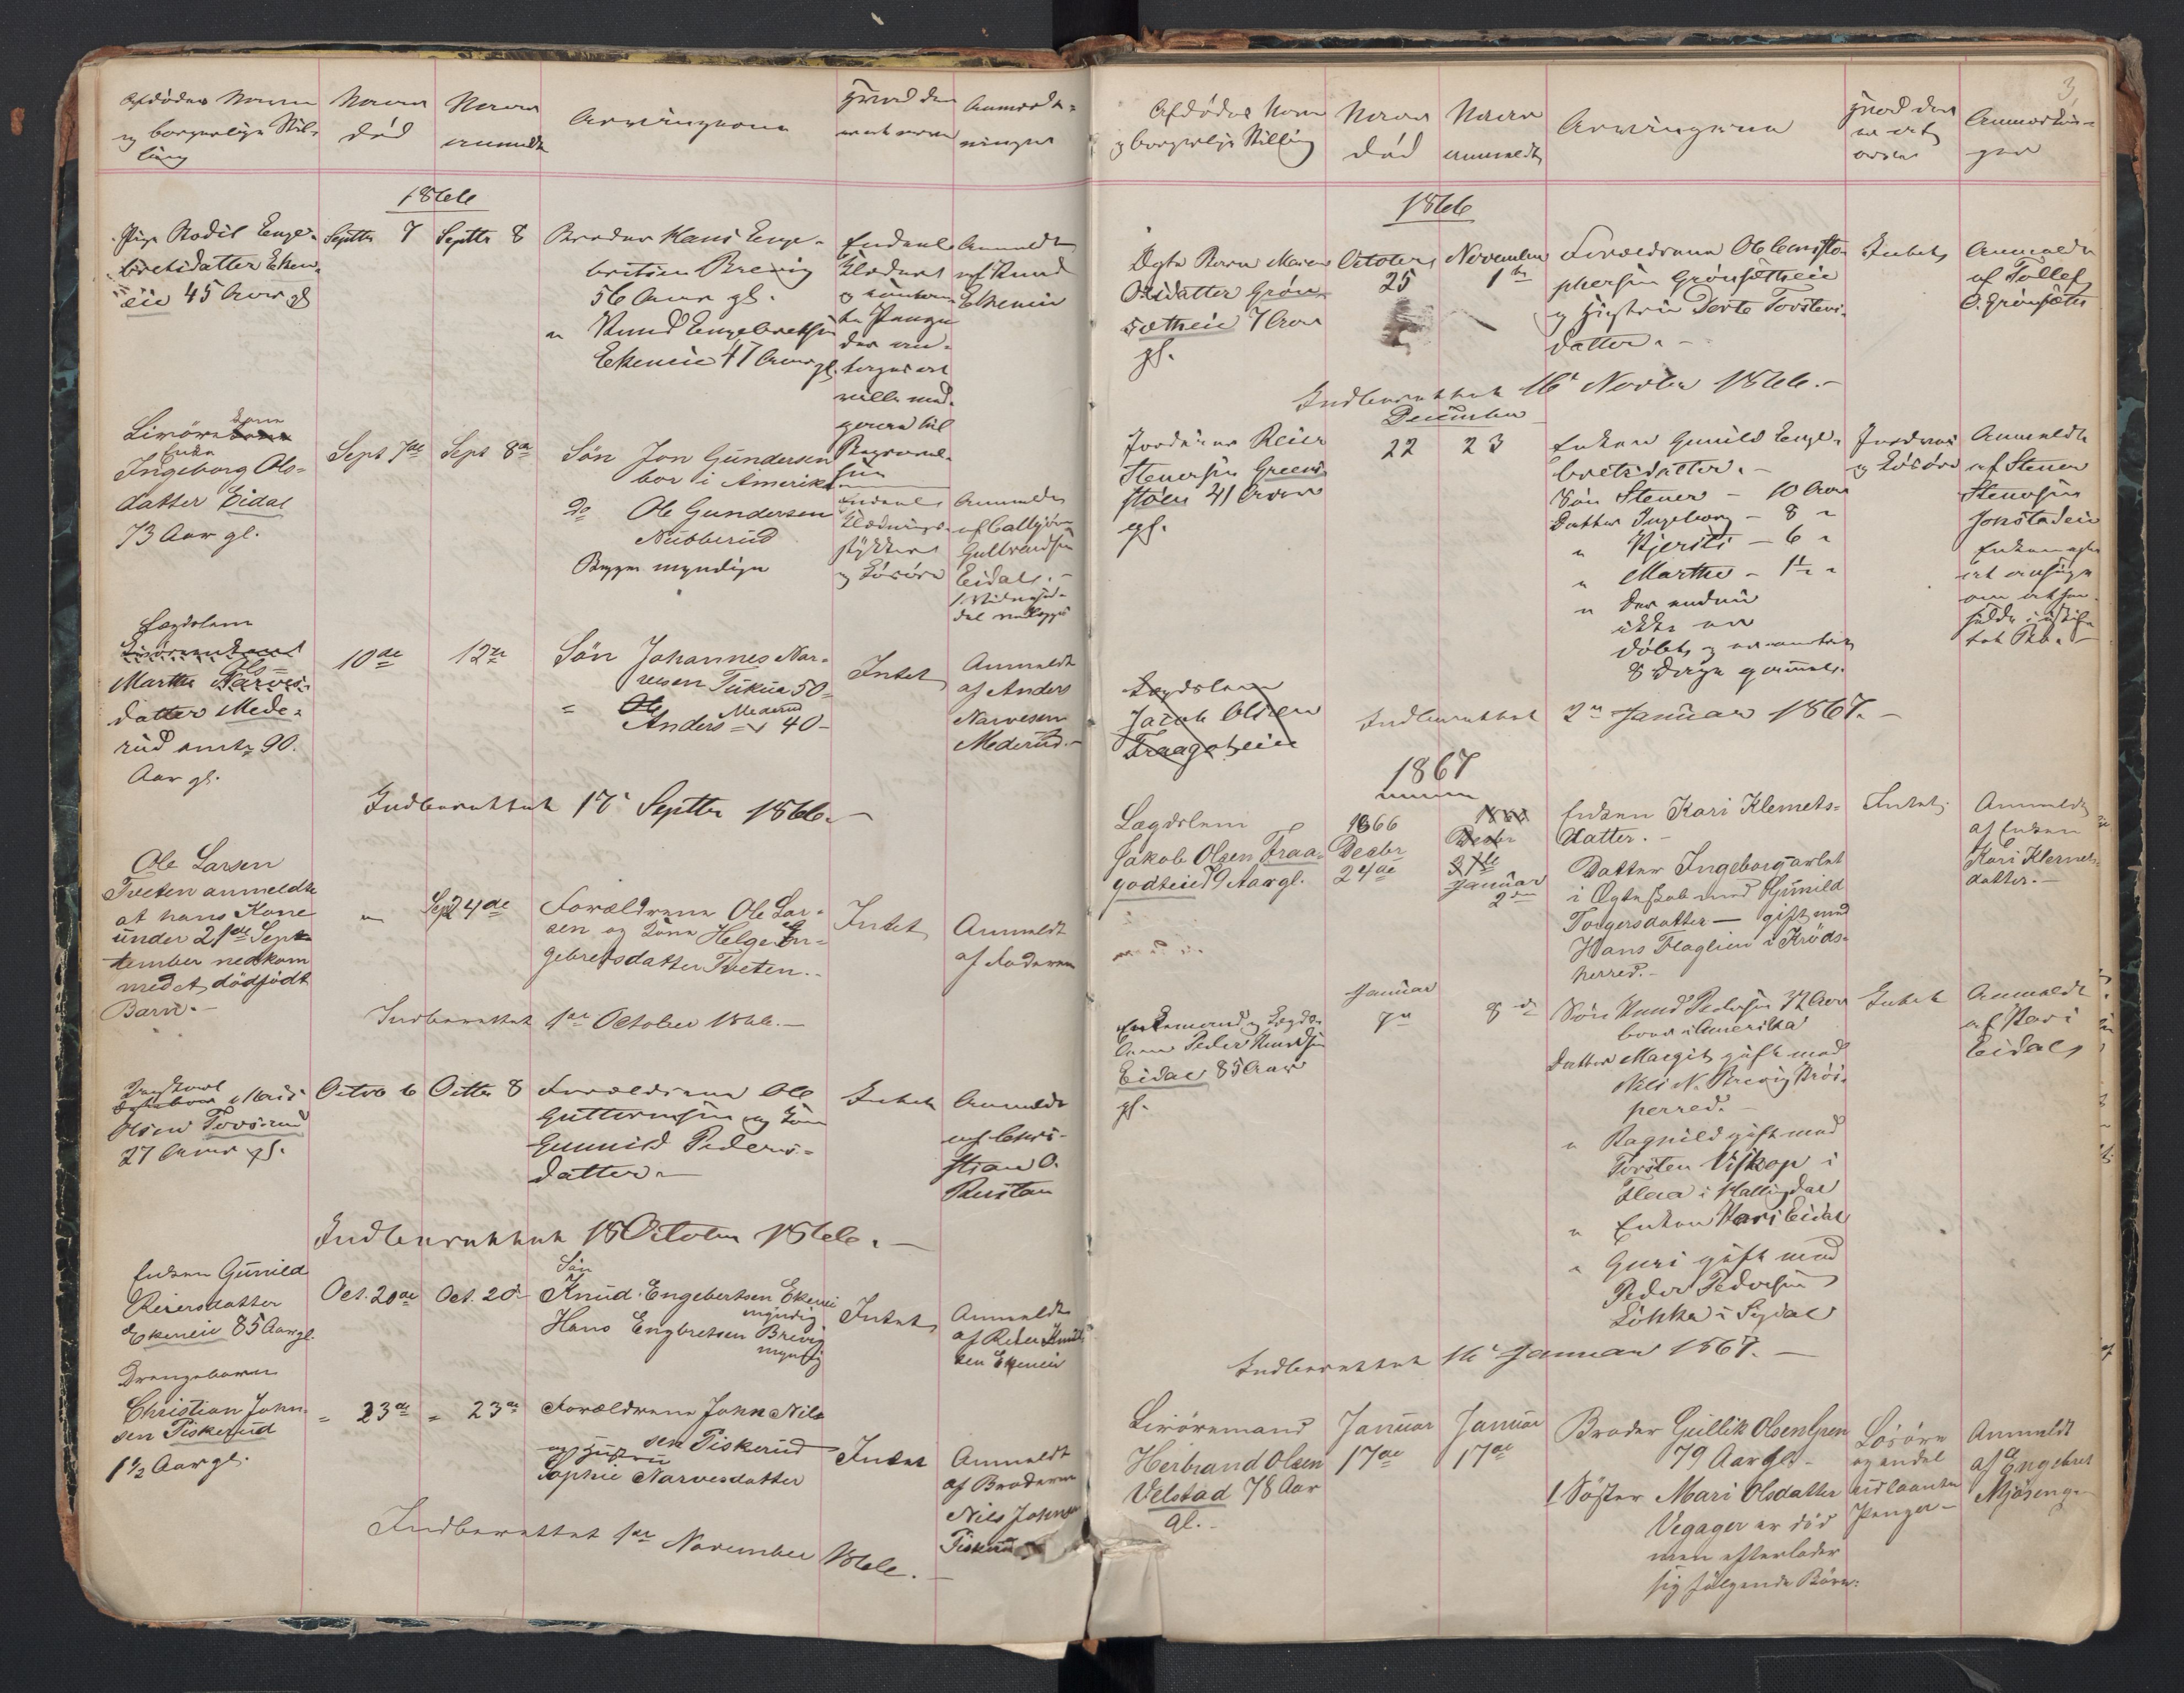 Afdödes Navn
og borgerlige Stil-
ling
Naar
död
Naar
anmeldt
Arvingerne
Hvad den
Anmærk-
ninger
1866
Pige Bodil Enge-
bretsdatter Eken-
eie 45 Aar gl
Septbr 7
Septbr 8
Broder Hans Enge-
bretsen Brevig
56 Aar gl.
" Knud Engebretsen
Ekeneie 47 Aar gl.
Endeel
Klæder
og
Penge
der an-
tages at
ville med-
gaae til
Begravel-
sen
Anmeldt
af Knud
Ekeneie
Livöre
Kone
Enke
Ingeborg Ols-
datter Eidal
73 Aar gl.
Sept 7de
Sept 8de
Sön Jon Gundersen
bor i Amerika
do Ole Gundersen
Nubberud
Begge myndige
Endeel
Klædnings-
stykker
og Lösöre
Anmeldt
Gulbrandsen
Eidal.-
Lægdslem
Marthe Ols-
datter Mede-
rud omtr 90.
Aar gl.
10de
12te
Sön Johannes Nar-
vesen Tukua 50-
= Ole
Anders Mederud 40-
Intet
Anmeldt
af Anders
Narvesen
Mederud.-
Indberettet 17 Septbr 1866.-
Ole Larsen
Tveten anmeldte
at hans Kone
under 21de Sep-
tember nedkom
med et dödfödt
Barn.-
"
Sept 24de
Forældrene Ole Lar-
sen og Kone Helge En-
gebretsdatter Tveten.-
Intet
Anmeldt
af Faderen
Indberettet 1ste October 1866.-
Mari
Olsen Tovsrud
27 Aar gl.
Octbr 6
Octbr 8
Forældrene Ole
Guttormsen og Kone
Gunild Peders-
datter.-
Intet
Anmeldt
af Chri-
stian O.
Rustan
Indberettet 18 October 1866.-
Enken Gunild
Reiersdatter
Ekeneie 85 Aar gl.
Oct. 20de
Oct. 20de
Sön
Knud Engebertsen Ekeneie
myndig
Hans Engbretsen Brevig
myndig
Intet
Anmeldt
af Reier Knud-
sen Ekeneie
Drengebarn
Christian John-
sen Piskerud
1 1/2 Aar gl.
" 23de
" 23de
Forældrene John Nils-
sen Piskerud
og Hustru
Sophie Narvesdatter
Intet
Anmeldt
af Broderen
Nils Johnsen
Piskerud
Indberettet 1ste November 1866.-
3
Afdödes Navn
og borgerlige Stilling
Naar
död
Naar
anmeldt
Arvingerne
Hvad der
Anmærknin-
ger
1866
Ægte Barn Maren
Olsdatter Grön-
sætheie 7 Aar
gl.
October
25
November
1ste
Forældrene Ole Christo-
phersen Grönsætheie
og Hustru Dorte Torstens-
datter.-
Intet
Anmeldt
af Tollef
O. Grönsæth
Indberettet 16 Novbr 1866.-
December
Reier
Stenersen Greens-
stölen 41 Aar
gl.
22
23
Enken Gunild Enge-
bretsdatter.-
Sön Stener - 10 Aar
Datter Ingeborg - 8 "
" Kjersti - 6 "
" Marthe - 1 1/2 "
" der endnu
ikke er
döbt og er omtrent
8 Dage gammel.
og Lösöre
Anmeldt
af Stener
Stenersen
Lægdslem
Jacob Olsen
Fraagotheie
Indberettet 2den Januar 1867.-
1867
Lægdslem
Jakob Olsen Fraa-
godteie 79 Aar gl.
1866
Decbr
24de
Decbr
31te
Januar
2den
Enken Kari Klemets-
datter.-
Datter Ingeborg avlet
i Ægteskab med Gunild
Torgersdatter - gift med
Hans Flaglien i Kröds-
herred.-
Intet
Anmeldt
af Enken
Kari Klemets-
datter.-
Enkemand og Lægds-
lem Peder Knudsen
Eidal 85 Aar
gl.
Januar
7de
8de
Sön Knud Pedersen 32 Aar
boer i Amerika
Datter Margit gift med
Nils N. Brevig Kröds-
herred.-
" Ragnild gift med
Torsten Viskop i
Flaa i Hallingdal
" Enken Kari Eidal
" Guri gift med
Peder Pedersen
Lökka i Sigdal
Intet
Anmeldt
af Kari
Eidal
Indberettet 16 Januar 1867.-
Livöremand
Herbrand Olsen
Velstad 78 Aar
gl.-
Januar
17de
Januar
17de
Broder Gullik Olsen Gren
79 Aar gl.-
1 Söster Mari Olsdatter
Vegager er död
men efterlader
sig fölgende Börn:
Lösöre
og endel
udlaante
Penger-
Anmeldt
af Engebret
Mjösenge